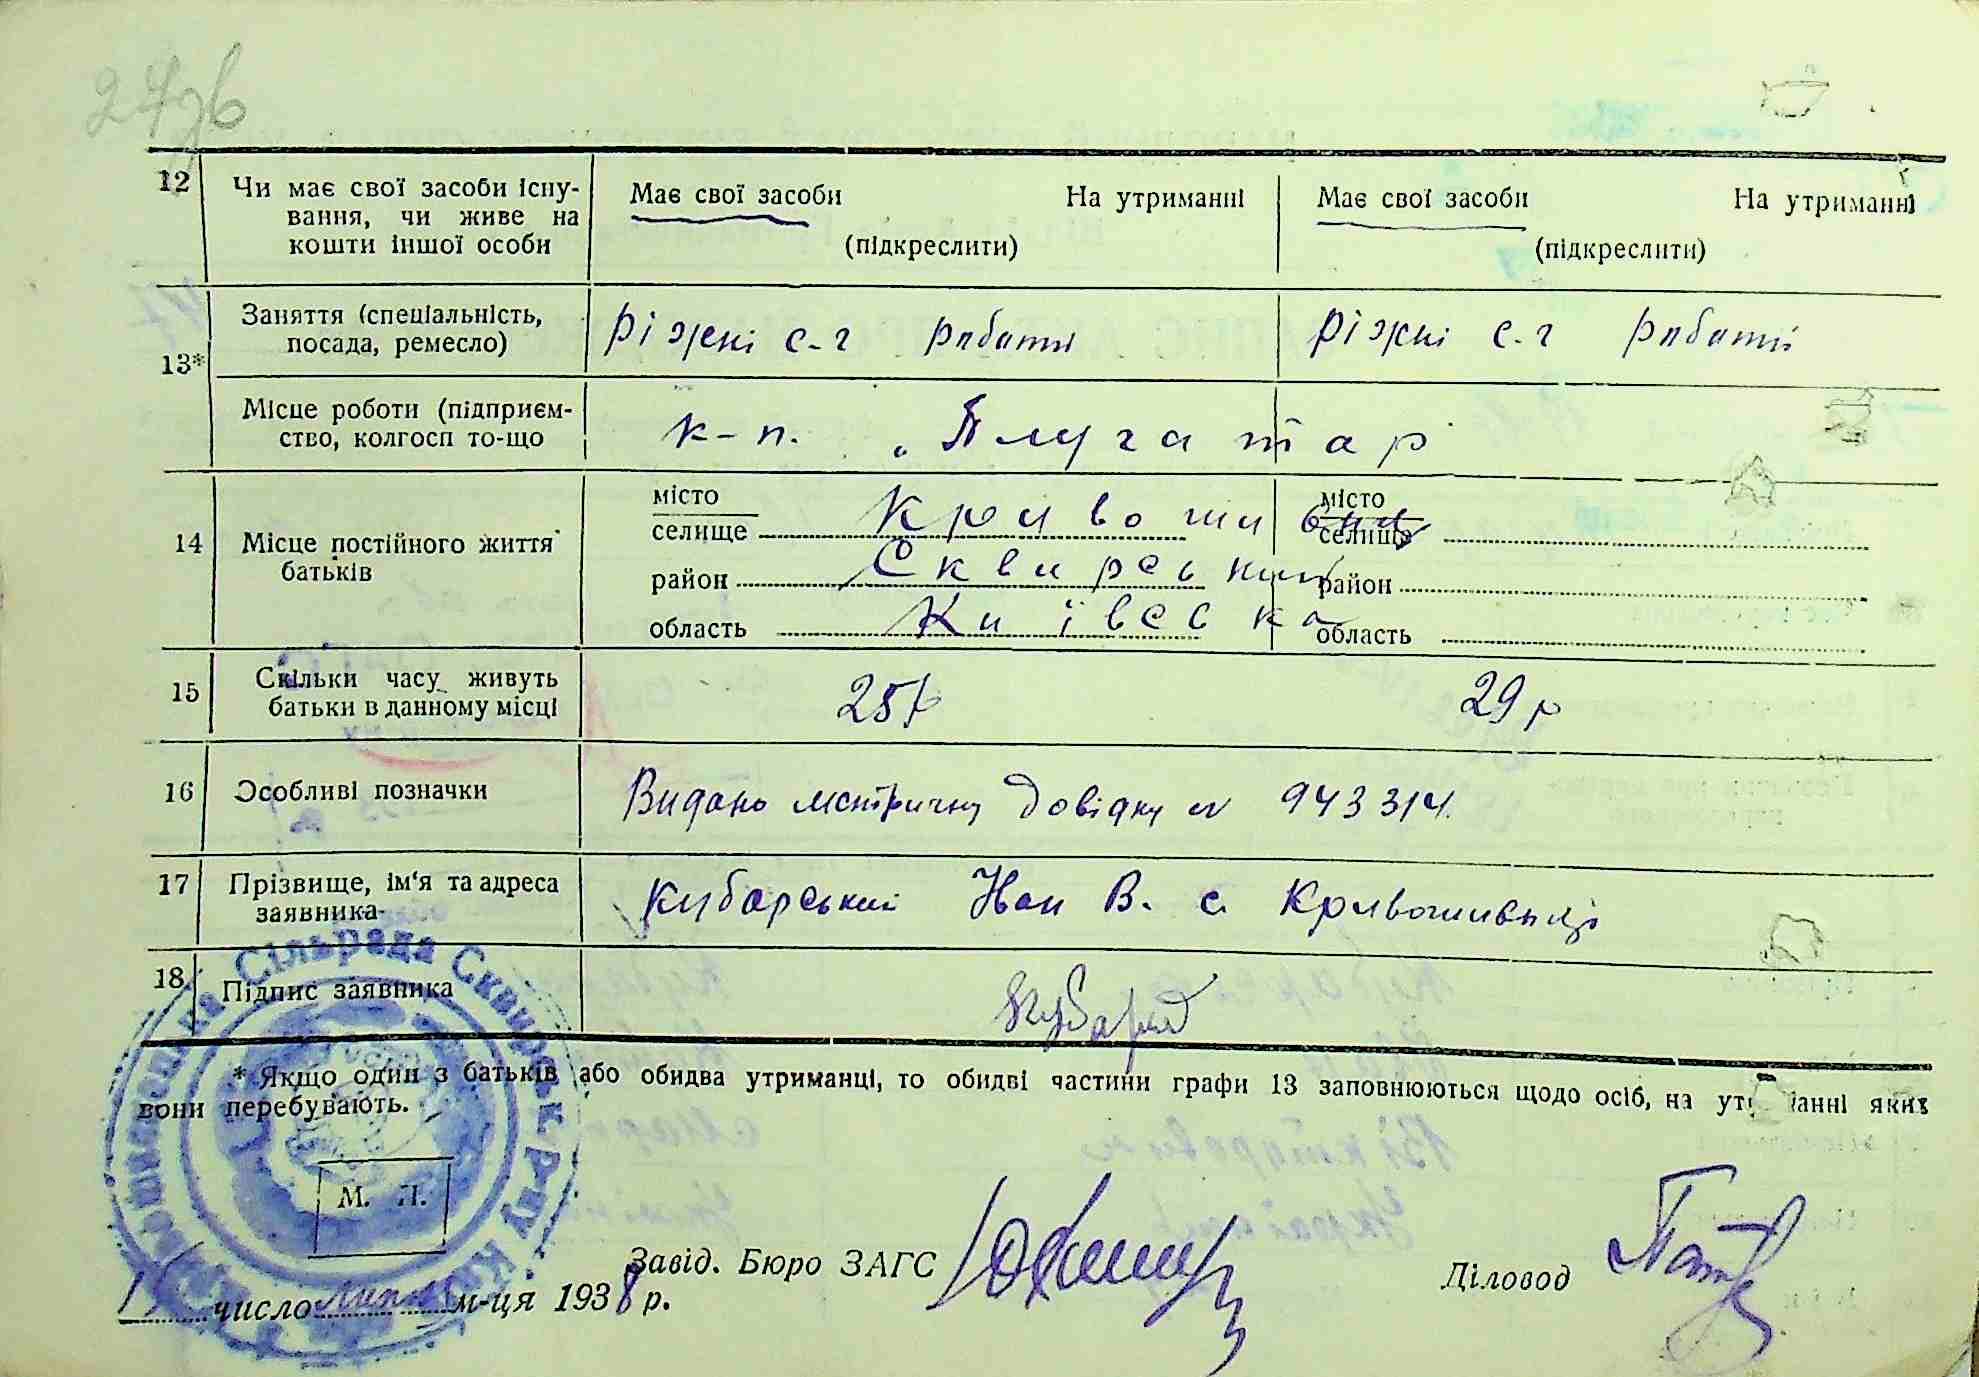 27зв
12 Чи має свої засоби існу-
вання, чи живе на
кошти іншої особи
Має свої засоби На утриманні
(підкреслити)
Має свої засоби На утриманні
(підкреслити)
13* Заняття (спеціальність,
посада, ремесло)
ріжні с-г роботи
ріжні с.г роботи
Місце роботи (підприєм-
ство, колгосп то-що
к-п. „Плугатар
14 Місце постійного життя
батьків
місто
селище Кривошиївці
район Сквирський
область Київська
місто
селище
район
область
15 Скільки часу живуть
батьки в данному місці
25р
29р
16 Особливі позначки
Видано метричну довідку № 943314.
17 Прізвище, ім‘я та адреса
заявника
Кубарський Іван В. с. Кривошивнці
18 Підпис заявника
* Якщо один з батьків або обидва утриманці, то обидві частини графи 13 заповнюються щодо осіб, на утриманні яких
вони перебувають.
Сільрада Сквирськ
М. П.
Завід. Бюро ЗАГС
Діловод
число липня м-ця 1938 р.